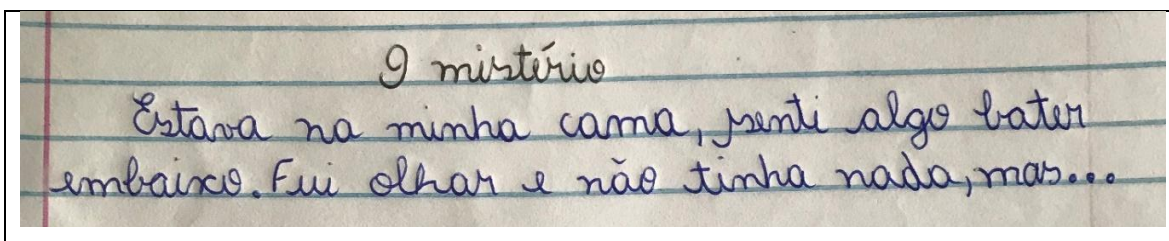 O mistério
Estava na minha cama, senti algo bater
embaixo. Fui olhar e não tinha nada, mas...